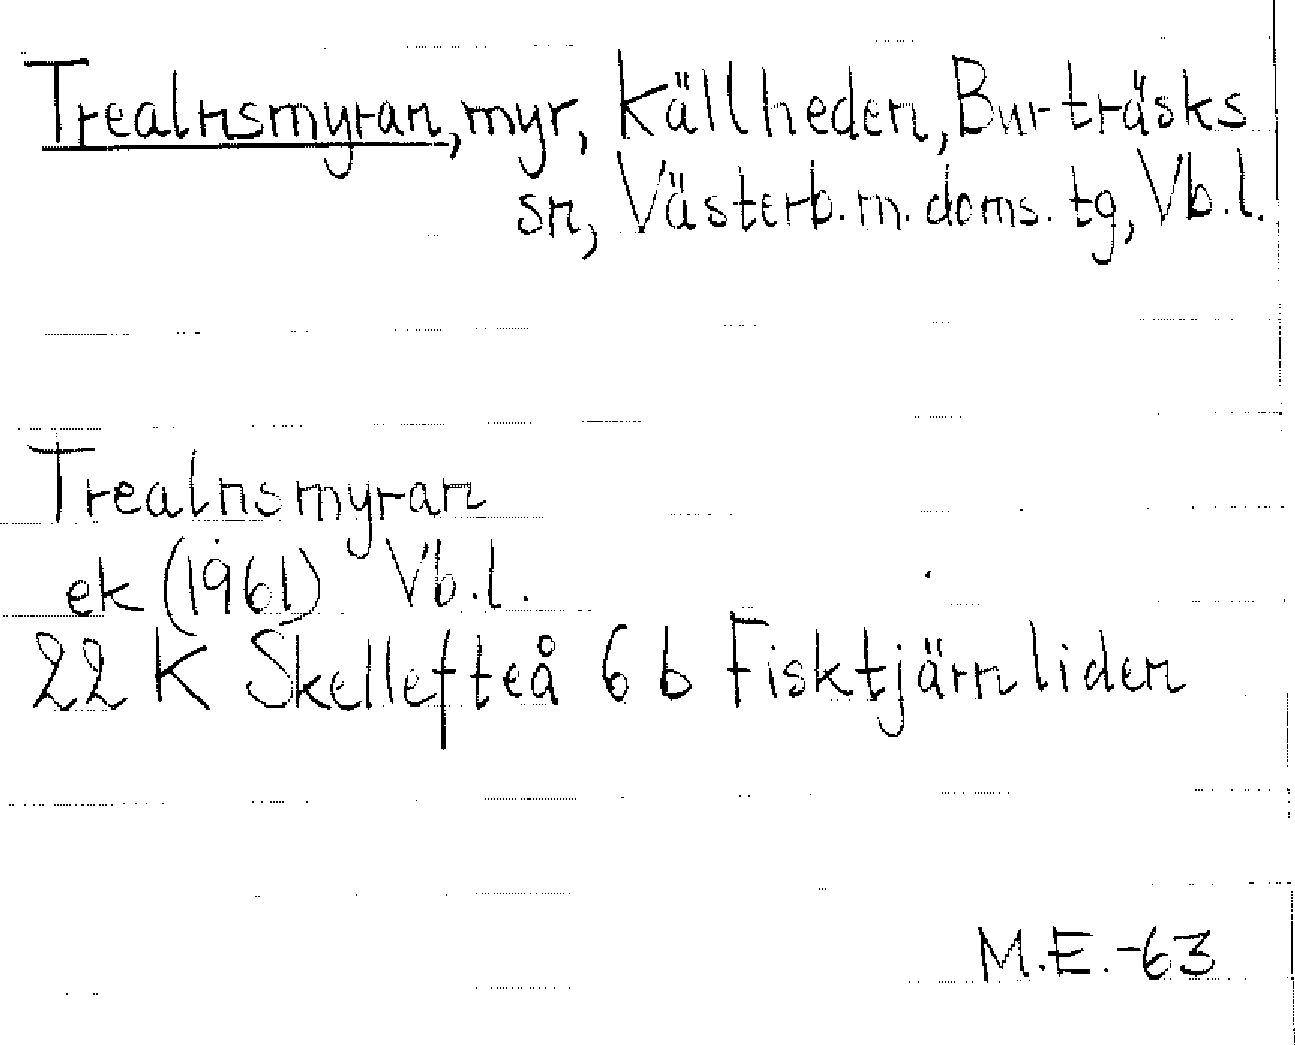 Trealnsmyran, myr, Källheden, Burträsks
sn, Västerb. m. doms. tg, Vb. l.
Trealnsmyran
ek (1961) Vb. l.
22 K Skellefteå 6 b Fisktjärnliden
M.E.-63